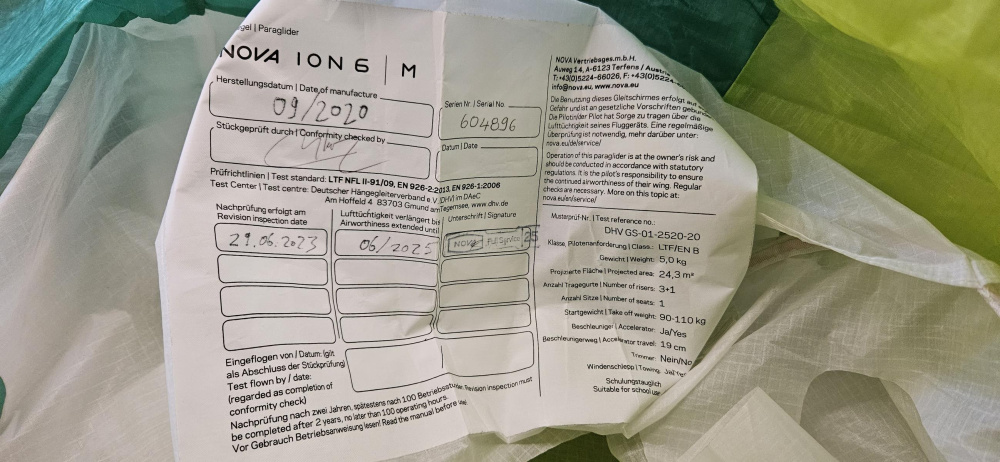 gel | Paraglider
NOVA ION 6 | M
Herstellungsdatum | Date of manufacture
09/2020
Stückgeprüft durch | Conformity checked by
Serien Nr. | Serial No.
604896
Datum | Date
Prüfrichtlinien | Test standard: LTF NFL II-91/09, EN 926-2:2013, EN 926-1:2006
Test Center | Test centre: Deutscher Hängegleiterverband e.V. (DHV) im DAeC
Am Hoffeld 4 83703 Gmund am Tegernsee, www.dhv.de
Nachprüfung erfolgt am
Revision inspection date
Lufttüchtigkeit verlängert bis
Airworthiness extended until
Unterschrift | Signature
29.06.2023
06/2025
NOVA Full Service 25
Eingeflogen von / Datum:
als Abschluss der Stückprüfung
Test flown by / date:
(regarded as completion of
conformity check)
Nachprüfung nach zwei Jahren, spätestens nach 100 Betriebsstunden. Revision inspection must
be completed after 2 years, no later than 100 operating hours.
Vor Gebrauch Betriebsanweisung lesen! Read the manual before use.
NOVA Vertriebsges.m.b.H.
Auweg 14, A-6123 Terfens / Austria
T: +43(0)5224-66026, F: +43(0)5224-
info@nova.eu, www.nova.eu
Die Benutzung dieses Gleitschirmes erfolgt auf
Gefahr und ist an gesetzliche Vorschriften gebunden.
Die Pilotin/der Pilot hat Sorge zu tragen über die
Lufttüchtigkeit seines Fluggeräts. Eine regelmäßige
Überprüfung ist notwendig, mehr darüber unter:
nova.eu/de/service/
Operation of this paraglider is at the owner's risk and
should be conducted in accordance with statutory
regulations. It is the pilot's responsibility to ensure
the continued airworthiness of their wing. Regular
checks are necessary. More on this topic at:
nova.eu/en/service/
Musterprüf-Nr. | Test reference no.:
DHV GS-01-2520-20
Klasse, Pilotenanforderung | Class.: LTF/EN B
Gewicht | Weight: 5,0 kg
Projizierte Fläche | Projected area: 24,3 m²
Anzahl Tragegurte | Number of risers: 3+1
Anzahl Sitze | Number of seats: 1
Startgewicht | Take off weight: 90-110 kg
Beschleuniger | Accelerator: Ja/Yes
Beschleunigerweg | Accelerator travel: 19 cm
Trimmer: Nein/No
Windenschlepp | Towing: Ja/Yes
Schulungstauglich
Suitable for school use